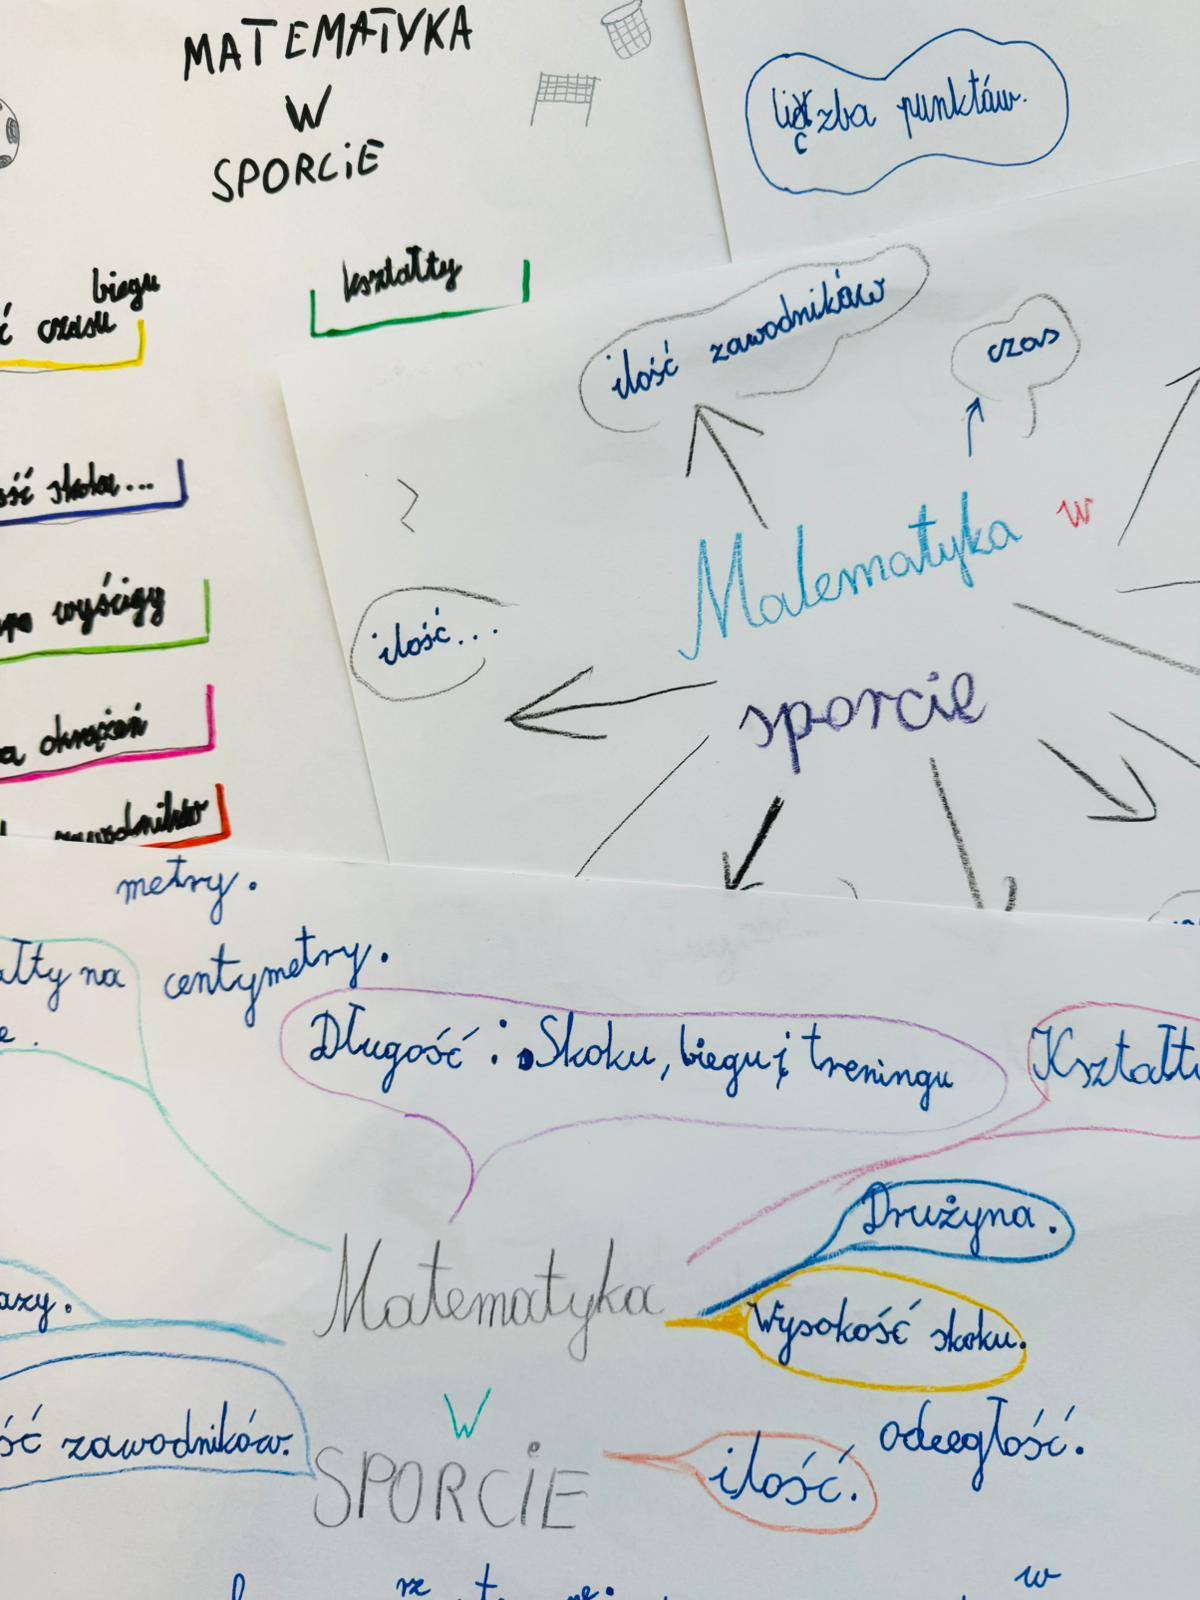 MATEMATYKA
W
SPORCiE
biegu
czasu
kształty
skoku...
wyścigy
okrążeń
zawodników
liczba punktów.
ilość zawodników
czas
ilość...
Matematyka w
sporcie
metry.
centymetry.
na
Długość : Skoku, biegu i treningu
Kształty
Drużyna.
Matematyka
Wysokość skoku.
W
zawodników.
SPORCiE
ilość.
odległość.
w